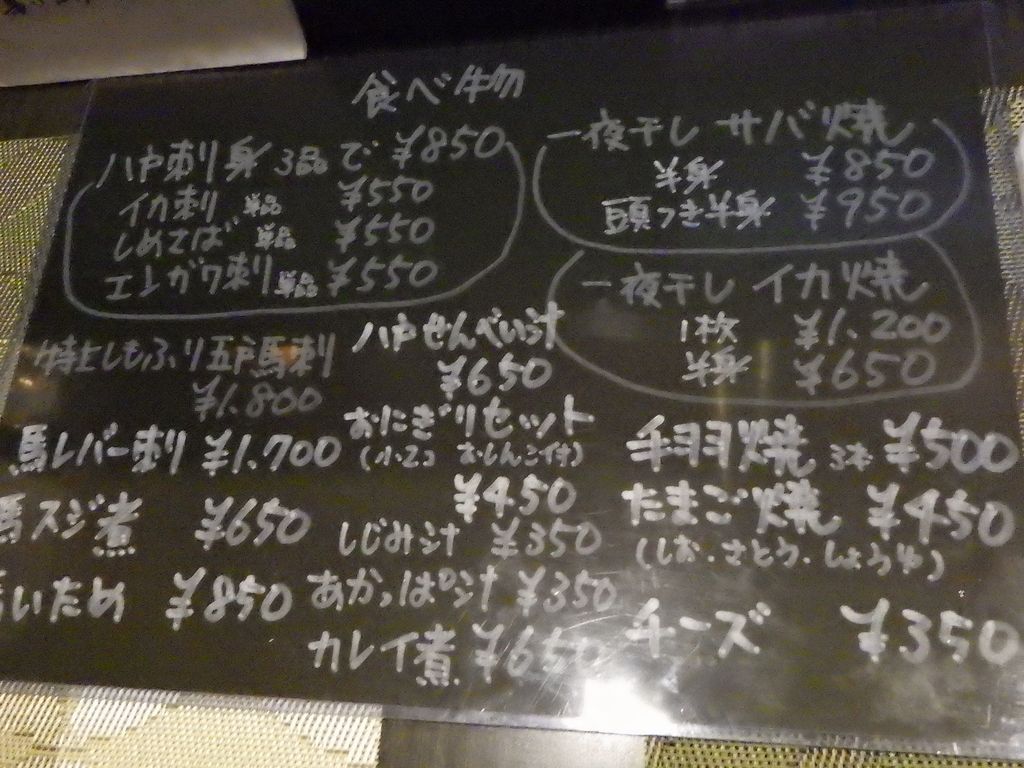 食べ物
八戸刺身 3品で ¥850
イカ刺 単品 ¥550
しめさば 単品 ¥550
エンガワ刺 単品 ¥550
特上しもふり五戸馬刺
¥1.800
馬レバー刺 ¥1.700
馬スジ煮 ¥650
いため ¥850
八戸せんべい汁
¥650
おにぎりセット
(小2コ おしんこ付)
¥450
しじみ汁 ¥350
あかっぱ汁 ¥350
カレイ煮 ¥650
一夜干し サバ焼
半身 ¥850
頭つき半身 ¥950
一夜干し イカ焼
1枚 ¥1.200
半身 ¥650
手羽焼 3本 ¥500
たまご焼 ¥450
(しお・さとう・しょうゆ)
チーズ ¥350